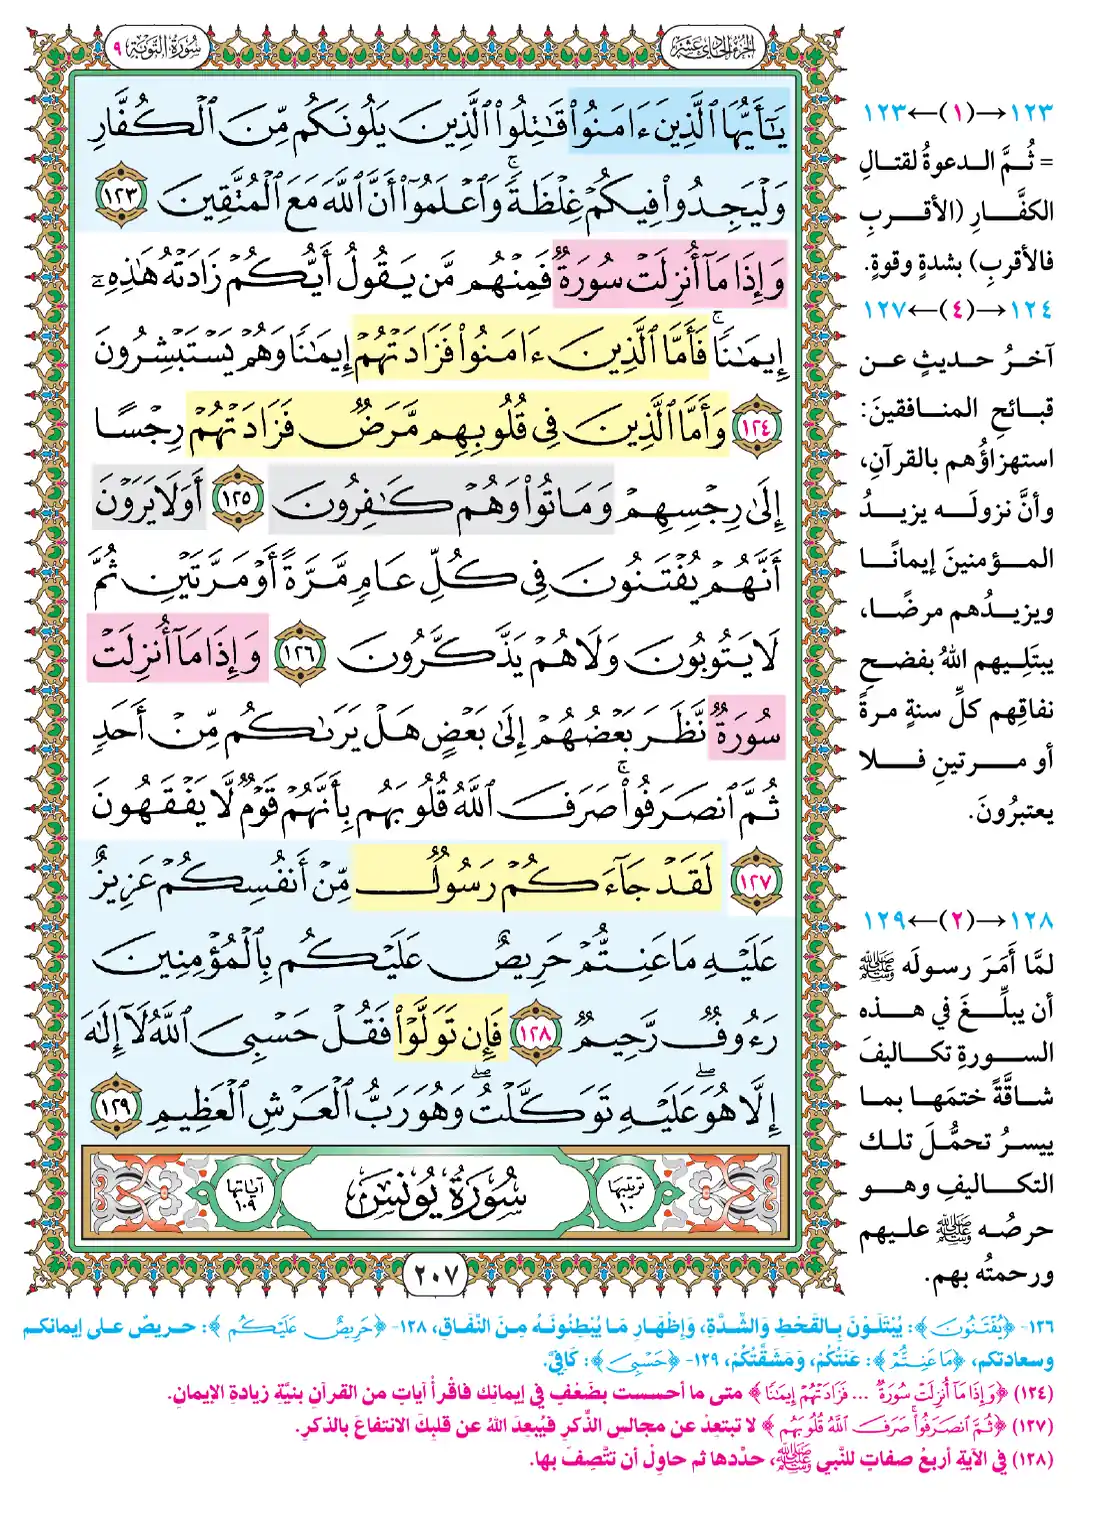 الجزء الحادي عشر
سورة التوبة ٩
يَٰٓأَيُّهَا ٱلَّذِينَ ءَامَنُوا۟ قَٰتِلُوا۟ ٱلَّذِينَ يَلُونَكُم مِّنَ ٱلْكُفَّارِ
وَلْيَجِدُوا۟ فِيكُمْ غِلْظَةًۚ وَٱعْلَمُوٓا۟ أَنَّ ٱللَّهَ مَعَ ٱلْمُتَّقِينَ ١٢٣
وَإِذَا مَآ أُنزِلَتْ سُورَةٌ فَمِنْهُم مَّن يَقُولُ أَيُّكُمْ زَادَتْهُ هَٰذِهِۦٓ
إِيمَٰنًاۚ فَأَمَّا ٱلَّذِينَ ءَامَنُوا۟ فَزَادَتْهُمْ إِيمَٰنًا وَهُمْ يَسْتَبْشِرُونَ
١٢٤ وَأَمَّا ٱلَّذِينَ فِى قُلُوبِهِم مَّرَضٌ فَزَادَتْهُمْ رِجْسًا
إِلَىٰ رِجْسِهِمْ وَمَاتُوا۟ وَهُمْ كَٰفِرُونَ ١٢٥ أَوَلَا يَرَوْنَ
أَنَّهُمْ يُفْتَنُونَ فِى كُلِّ عَامٍ مَّرَّةً أَوْ مَرَّتَيْنِ ثُمَّ
لَا يَتُوبُونَ وَلَا هُمْ يَذَّكَّرُونَ ١٢٦ وَإِذَا مَآ أُنزِلَتْ
سُورَةٌ نَّظَرَ بَعْضُهُمْ إِلَىٰ بَعْضٍ هَلْ يَرَىٰكُم مِّنْ أَحَدٍ
ثُمَّ ٱنصَرَفُوا۟ۚ صَرَفَ ٱللَّهُ قُلُوبَهُم بِأَنَّهُمْ قَوْمٌ لَّا يَفْقَهُونَ
١٢٧ لَقَدْ جَآءَكُمْ رَسُولٌ مِّنْ أَنفُسِكُمْ عَزِيزٌ
عَلَيْهِ مَا عَنِتُّمْ حَرِيصٌ عَلَيْكُم بِٱلْمُؤْمِنِينَ
رَءُوفٌ رَّحِيمٌ ١٢٨ فَإِن تَوَلَّوْا۟ فَقُلْ حَسْبِىَ ٱللَّهُ لَآ إِلَٰهَ
إِلَّا هُوَۖ عَلَيْهِ تَوَكَّلْتُۖ وَهُوَ رَبُّ ٱلْعَرْشِ ٱلْعَظِيمِ ١٢٩
ترتيبها ١٠
سُورَةُ يُونُسَ
آياتها ١٠٩
٢٠٧
١٢٣→(١)←١٢٣
= ثُمَّ الدعوةُ لقتالِ
الكفَّارِ (الأقربِ
فالأقربِ) بشدةٍ وقوةٍ.
١٢٤→(٤)←١٢٧
آخرُ حديثٍ عن
قبائحِ المنافقينَ:
استهزاؤُهم بالقرآنِ،
وأنَّ نزولَه يزيدُ
المؤمنينَ إيمانًا
ويزيدُهم مرضًا،
يبتَلِيهم اللهُ بفضحِ
نفاقِهم كلِّ سنةٍ مرةً
أو مرتينِ فلا
يعتبرُونَ.
١٢٨→(٢)←١٢٩
لمَّا أَمَرَ رسولَه ﷺ
أن يبلِّغَ في هذه
السورةِ تكاليفَ
شاقَّةً ختمَها بما
ييسرُ تحمُّلَ تلك
التكاليفِ وهو
حرصُه ﷺ عليهم
ورحمتُه بهم.
١٢٦- ﴿يُفْتَنُونَ﴾: يُبْتَلَوْنَ بِالقَحْطِ وَالشِّدَّةِ، وَإِظْهَارِ مَا يُبْطِنُونَهُ مِنَ النِّفَاقِ، ١٢٨- ﴿حَرِيصٌ عَلَيْكُم﴾: حريصٌ على إيمانكم
وسعادتكم، ﴿مَا عَنِتُّمْ﴾: عَنَتُكُمْ، وَمَشَقَّتُكُمْ، ١٢٩- ﴿حَسْبِىَ﴾: كَافِيَّ.
(١٢٤) ﴿وَإِذَا مَآ أُنزِلَتْ سُورَةٌ ... فَزَادَتْهُمْ إِيمَٰنًا﴾ متى ما أحسست بضَعْفٍ في إيمانِك فاقْرأْ آياتٍ من القرآنِ بنيَّةِ زيادةِ الإيمانِ.
(١٢٧) ﴿ثُمَّ ٱنصَرَفُوا۟ۚ صَرَفَ ٱللَّهُ قُلُوبَهُم﴾ لا تبتعِدْ عن مجالسِ الذِّكرِ فيُبعِدَ اللهُ عن قلبِكَ الانتفاعَ بالذكرِ.
(١٢٨) في الآيةِ أربعُ صفاتٍ للنَّبي ﷺ، حدِّدها ثم حاوِلْ أن تتَّصِفَ بها.